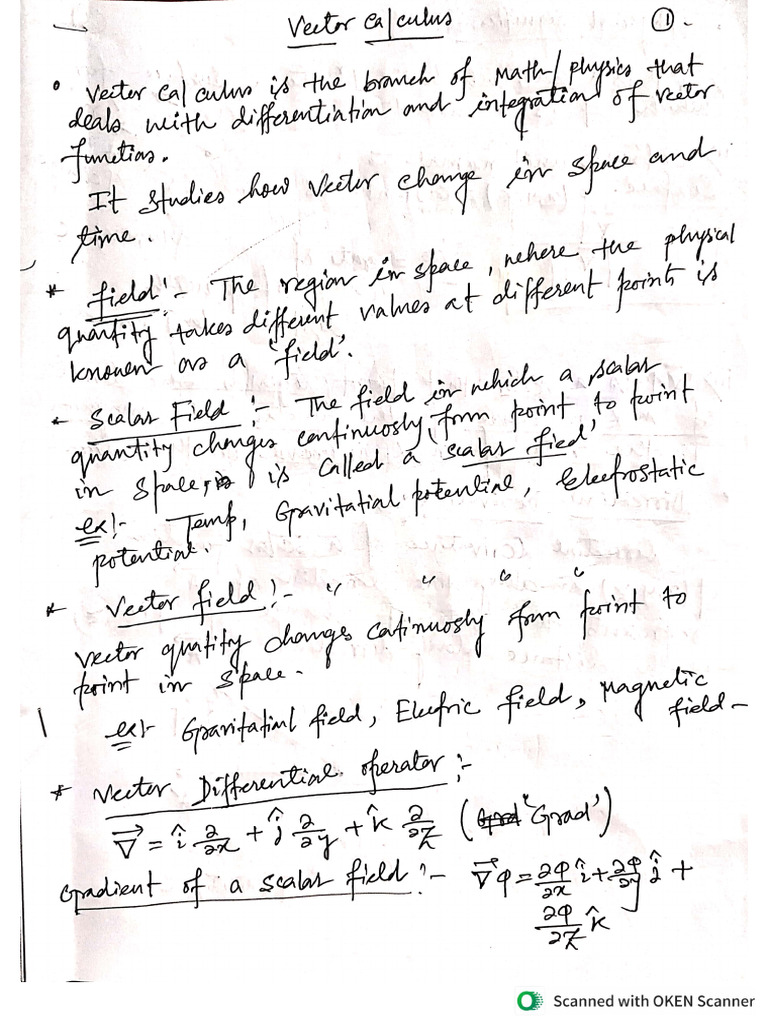 Vector Calculus ①.
• Vector calculus is the branch of math/physics that
deals with differentiation and integration of vector
functios.
It studies how vector change in space and
time.
* field:- The region in space, where the physical
quantity takes different values at different points is
known as a "field".
* Scalar Field :- The field in which a scalar
quantity changes continuosly from point to point
in space, is called a scalar fied'
ex:- Temp, Gravitatial potential, Electrostatic
potential.
* Vector field :- " " " "
vector qutity changes catinuosly from point to
point in space.
ex:- Gravitatial field, Electric field, Magnetic
field -
* Vector Differential operator :-
∇⃗ = î ∂/∂x + ĵ ∂/∂y + k̂ ∂/∂z ("Grad')
Gradient of a scalar field :- ∇⃗φ = ∂φ/∂x î + ∂φ/∂y ĵ +
∂φ/∂z k̂
Scanned with OKEN Scanner